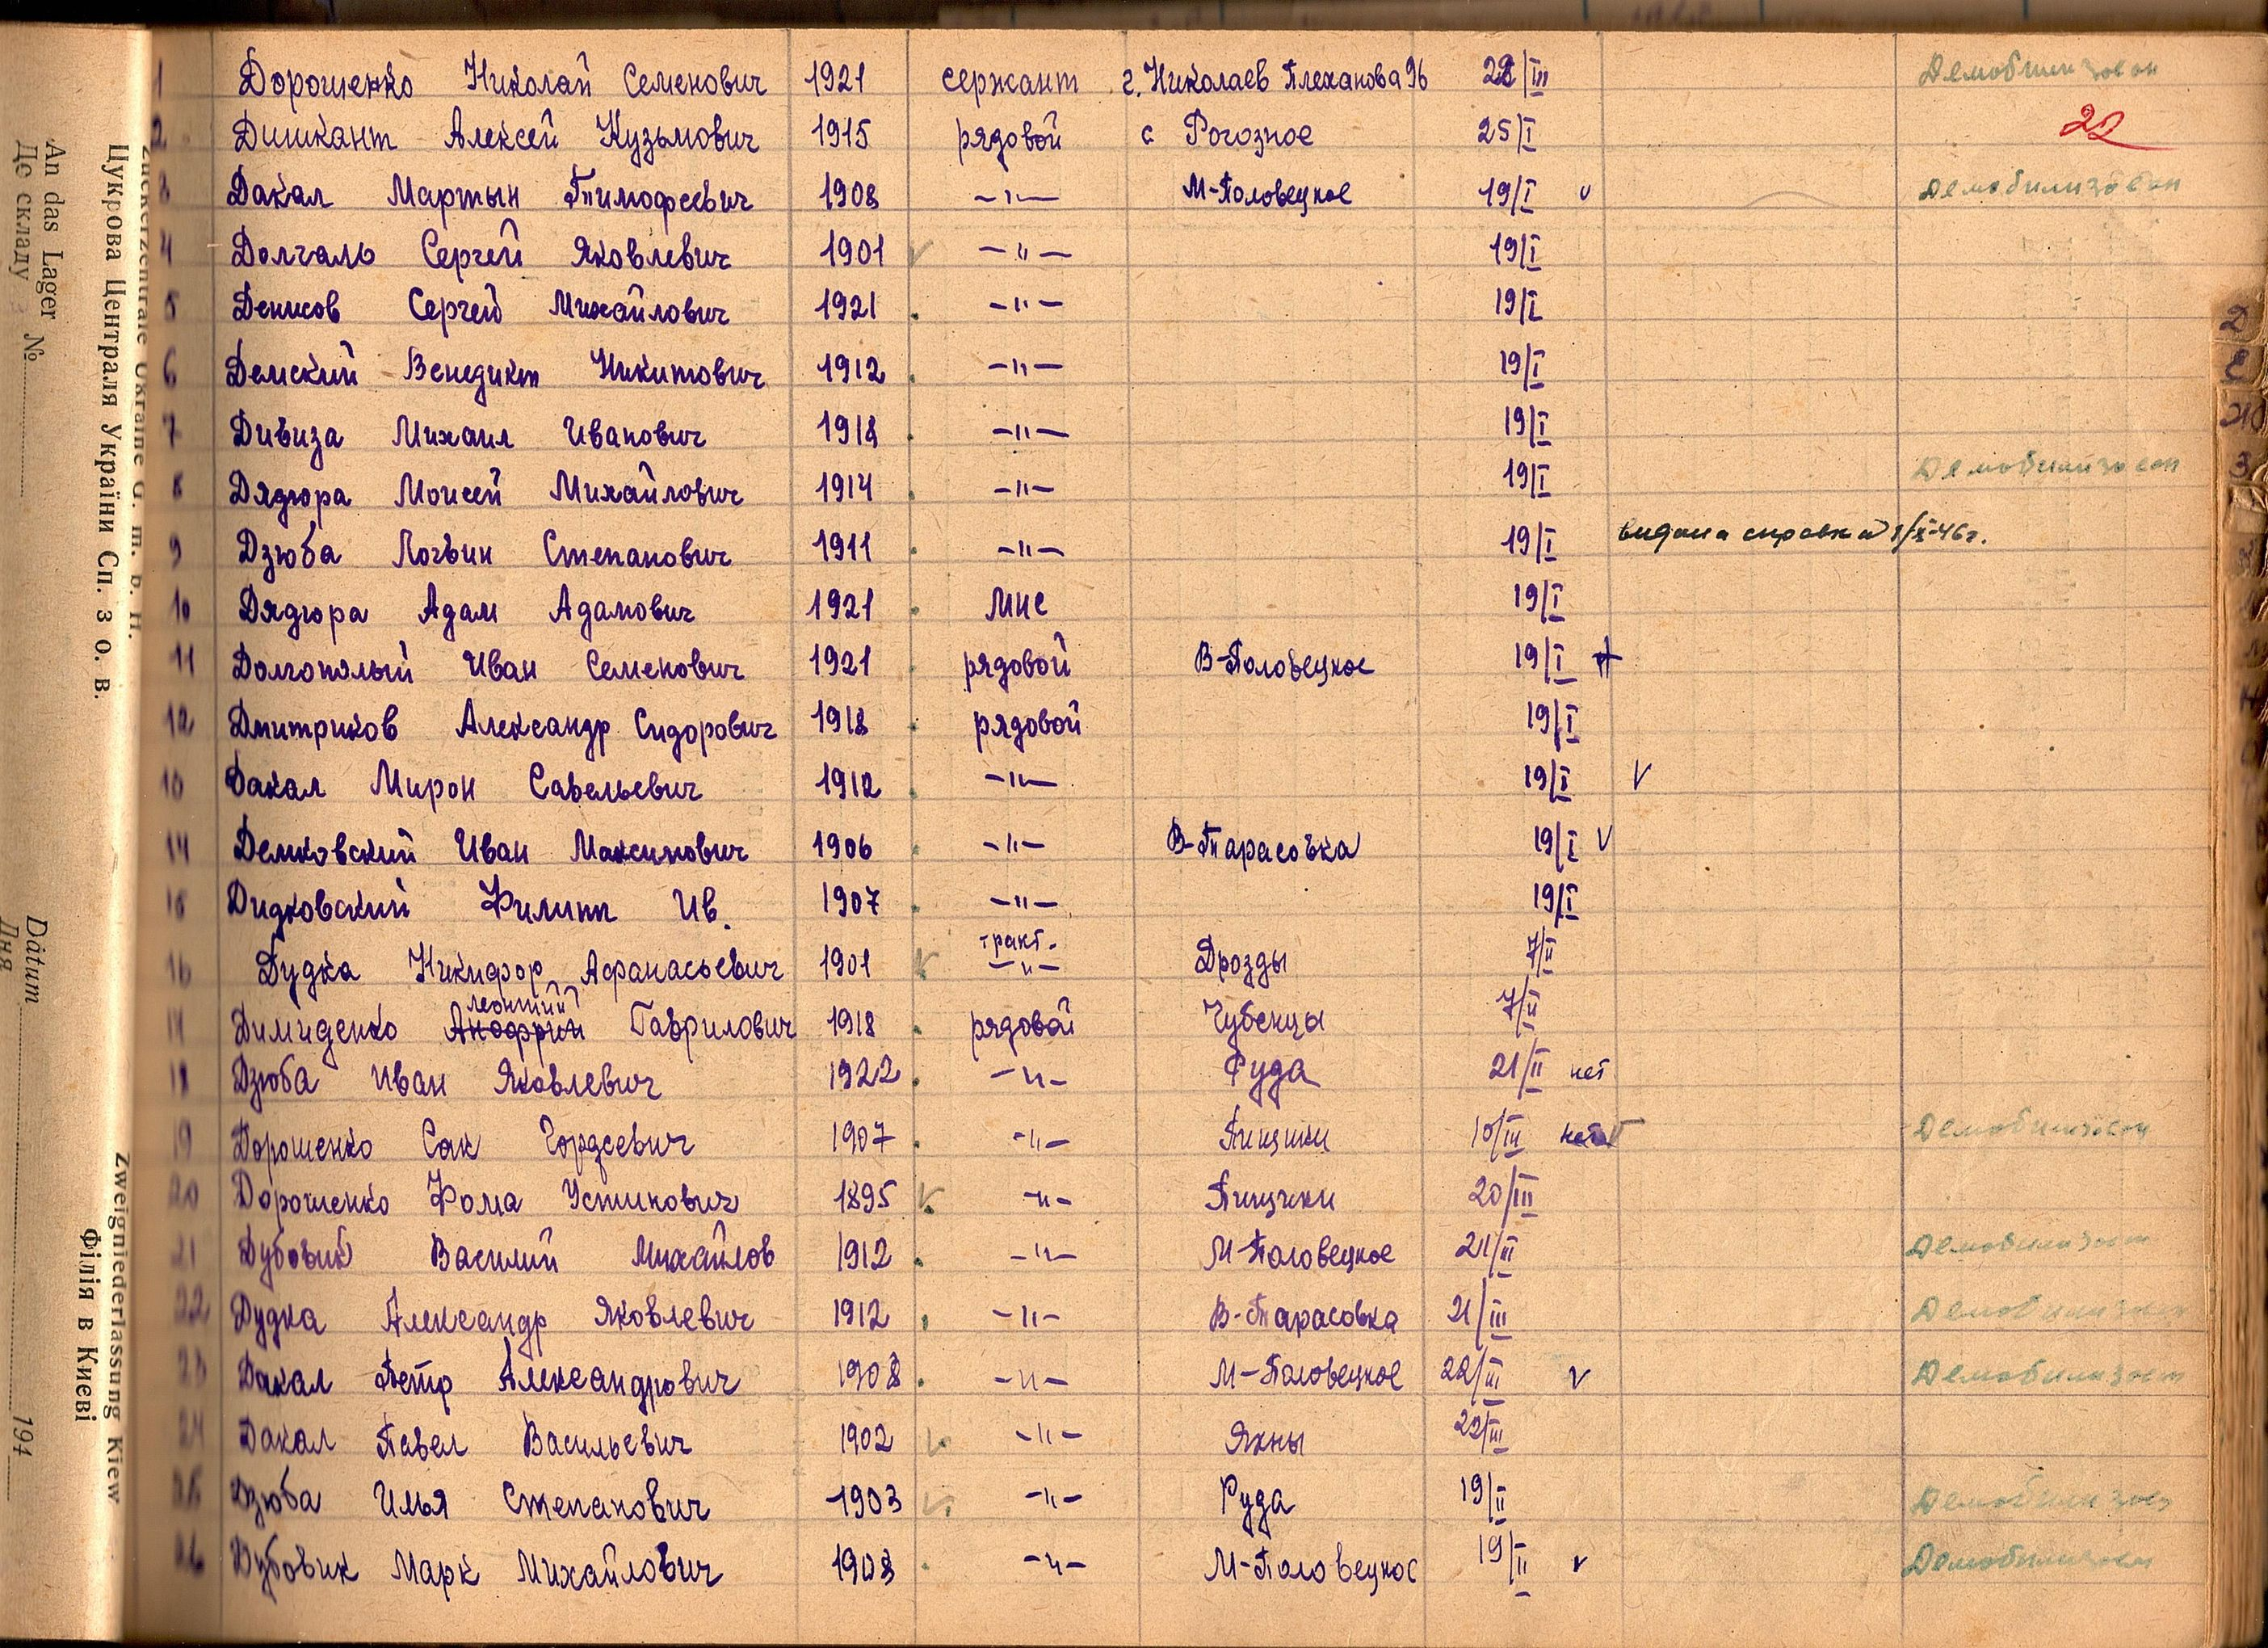 1 Дорошенко Николай Семенович 1921 сержант г. Николаев Плеханова 96 22/III Демобилизован
22
2 Дишкант Алексей Кузьмович 1915 рядовой с Рогозное 25/I
3 Дакал Мартын Тимофеевич 1908 —"— М-Половецкое 19/I v Демобилизован
4 Долгаль Сергей Яковлевич 1901 v —"— 19/I
5 Денисов Сергей Михайлович 1921 —"— 19/I
6 Демский Венедикт Никитович 1912 —"— 19/I
7 Дивиза Михаил Иванович 1918 —"— 19/I
8 Дядюра Моисей Михайлович 1914 —"— 19/I Демобилизован
9 Дзюба Логвин Степанович 1911 —"— 19/I видана справка 1/X-46г.
10 Дядюра Адам Адамович 1921 19/I
11 Долгополый Иван Семенович 1921 рядовой В-Половецкое 19/I
12 Дмитриков Александр Сидорович 1918 рядовой 19/I
13 Дакал Мирон Савельевич 1912 —"— 19/I v
14 Демковский Иван Максимович 1906 —"— В-Тарасовка 19/I v
15 Дидковский Филипп Ив. 1907 —"— 19/I
16 Дудка Никифор Афанасьевич 1901 v тракт. —"— Дрозды 7/II
Леонтий
17 Димиденко Анофрий Гаврилович 1918 рядовой Чубенцы 7/II
18 Дзюба Иван Яковлевич 1922 —"— Руда 21/II нет
19 Дорошенко Сак Гордеевич 1907 —"— Пищики 10/III нет Демобилизован
20 Дорошенко Фома Устинович 1895 v —"— Пищики 20/III
21 Дубовик Василий Михайлов 1912 —"— М-Половецкое 21/II Демобилизован
22 Дудка Александр Яковлевич 1912 —"— В-Тарасовка 21/III Демобилизован
23 Дакал Петр Александрович 1908 —"— М-Половецкое 22/III v Демобилизован
24 Дакал Павел Васильевич 1902 v —"— Яхны 22/III
25 Дзюба Илья Степанович 1903 v —"— Руда 19/II Демобилизов
26 Дубовик Марк Михайлович 1908 —"— М-Половецкое 19/II v Демобилизован
Zuckerzentrale Ukraine G. m. b. H.
Цукрова Централя України Сп. з о. в.
An das Lager №
До складу
Zweigniederlassung Kiew
Філія в Києві
Datum 194
Дня